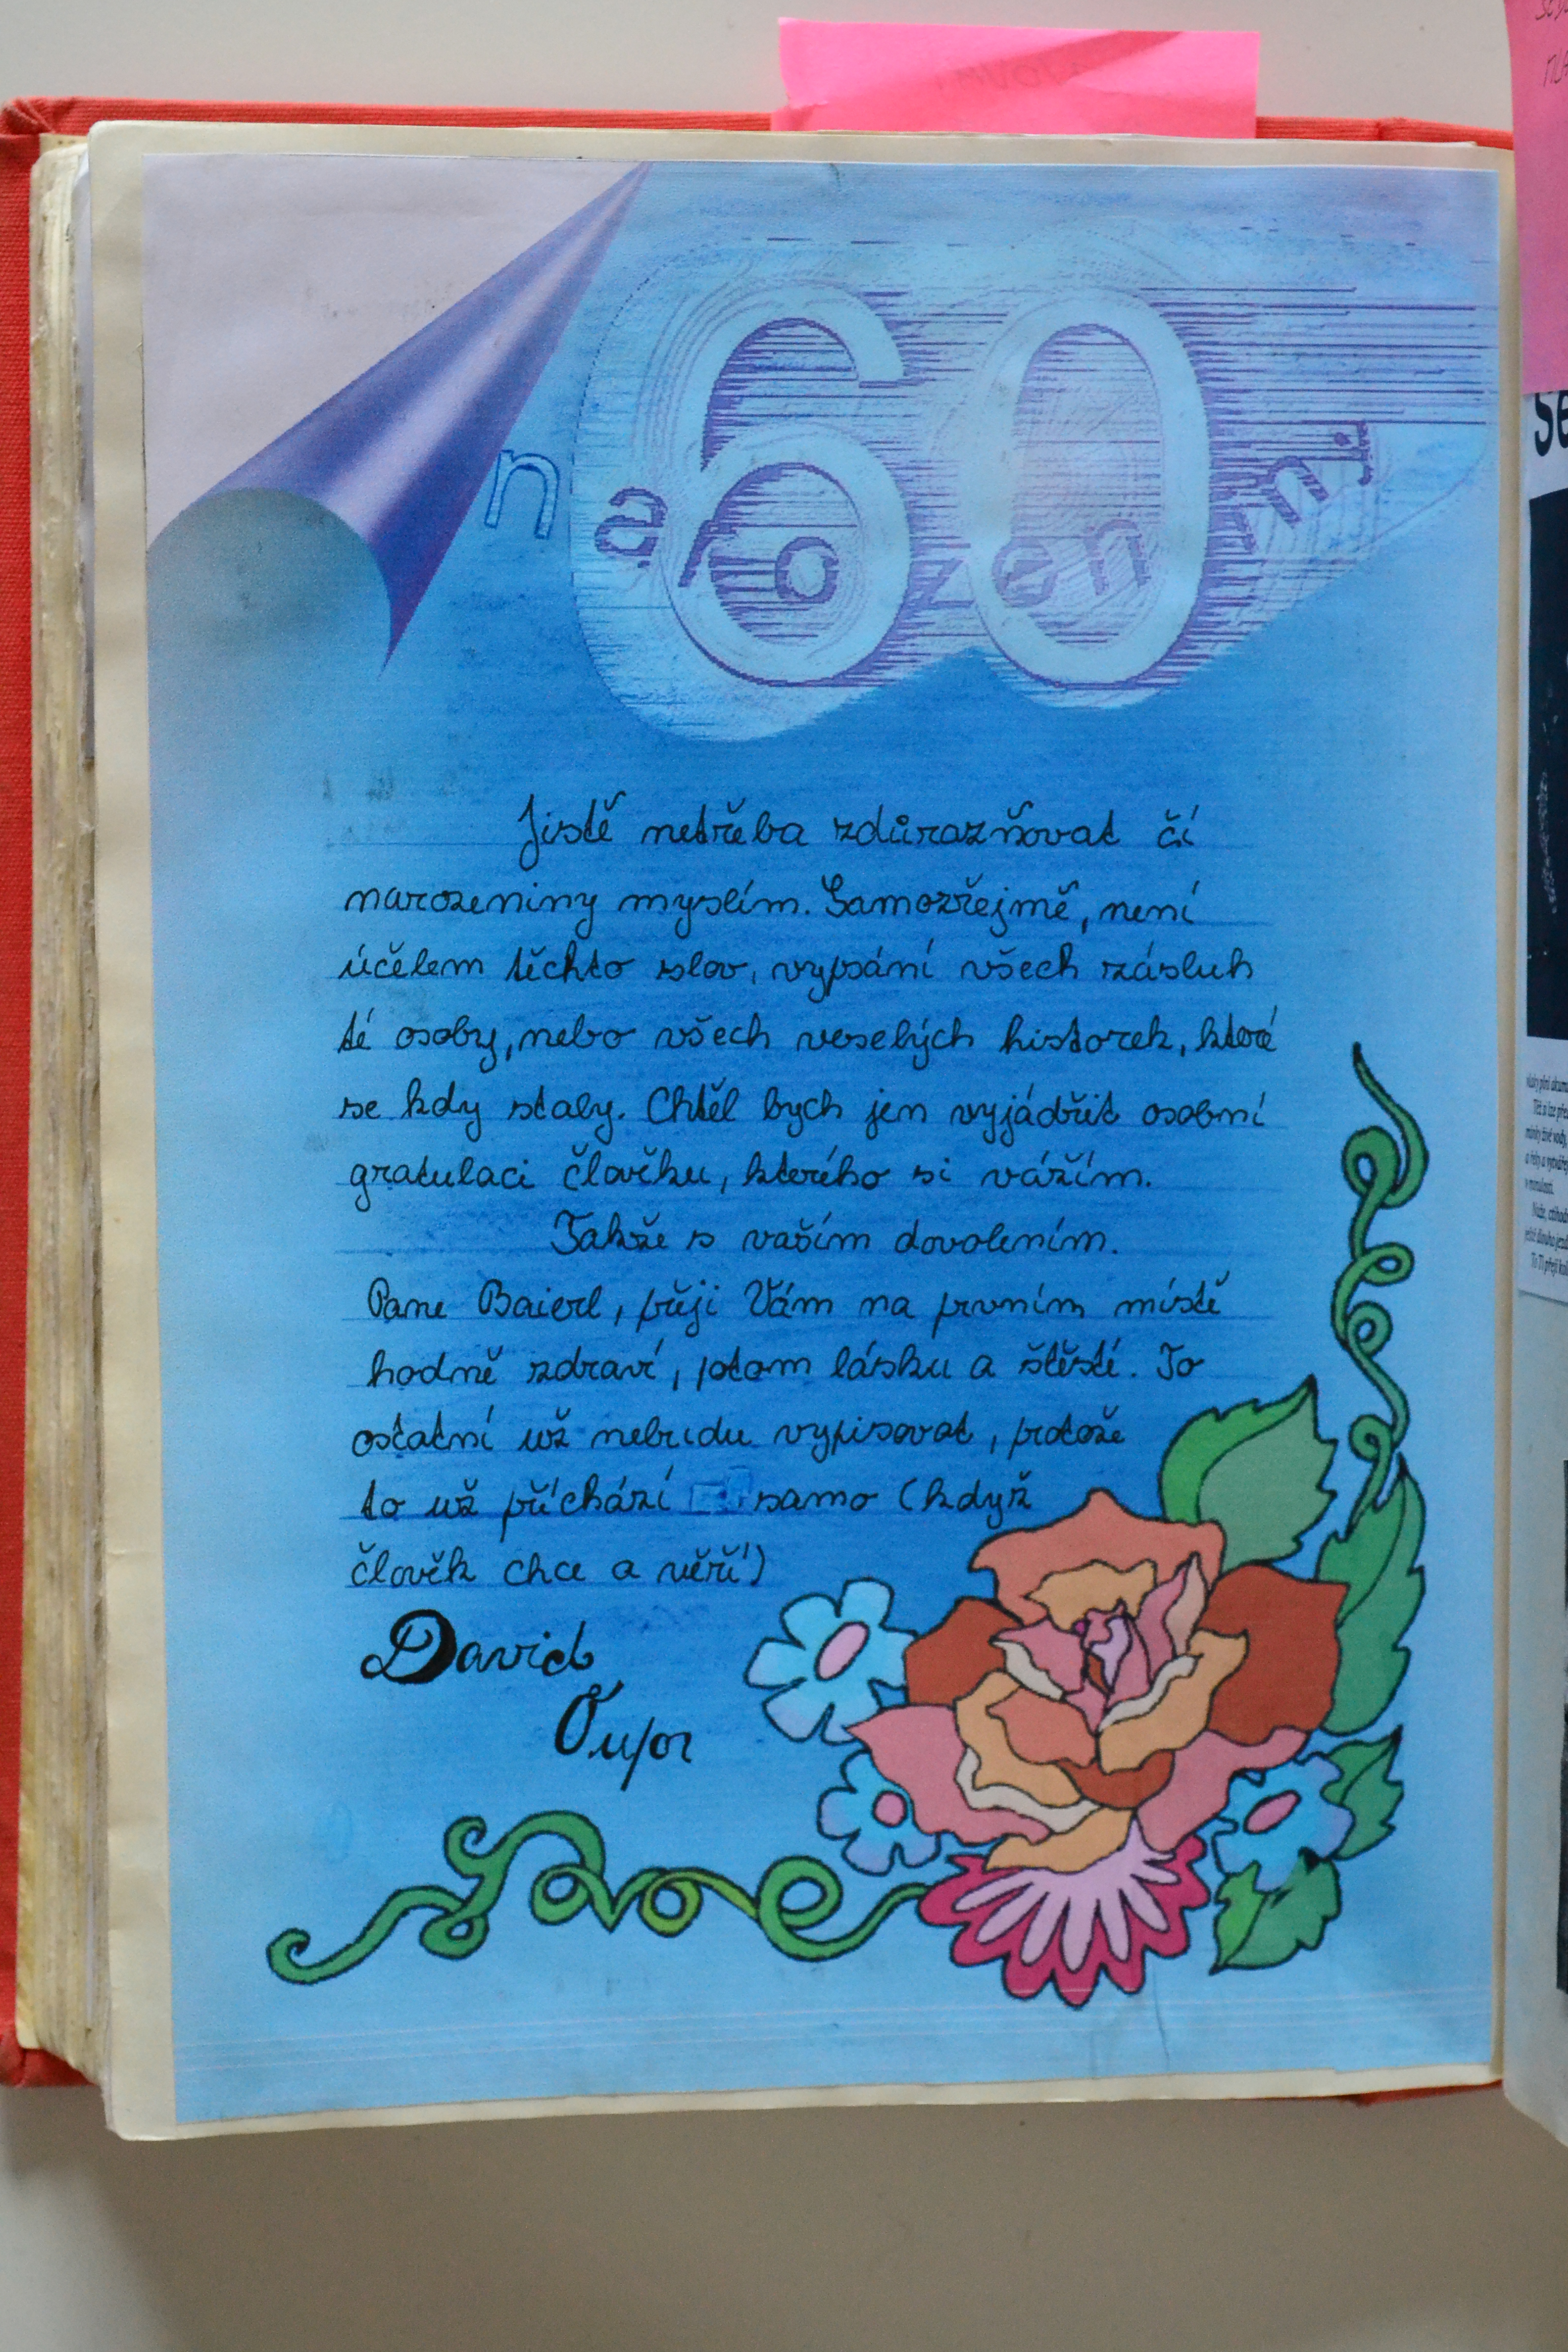 60
narozeniny
Jistě netřeba zdůrazňovat čí
narozeniny myslím. Samozřejmě, není
účelem těchto slov, vypsání všech zásluh
té osoby, nebo všech veselých historek, které
se kdy staly. Chtěl bych jen vyjádřit osobní
gratulaci člověku, kterého si vážím.
Takže s vaším dovolením.
Pane Baierl, přeji Vám na prvním místě
hodně zdraví, potom lásku a štěstí. To
ostatní už nebudu vypisovat, protože
to už přichází samo (když
člověk chce a věří)
David
Love